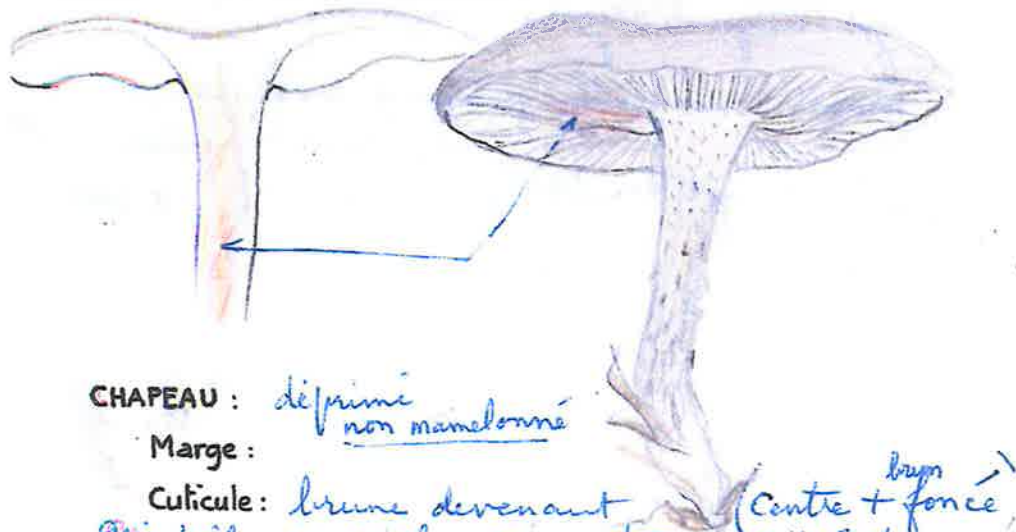 CHAPEAU : déprimé
non mamelonné
Marge :
Cuticule : brune devenant (Centre + brun foncé)